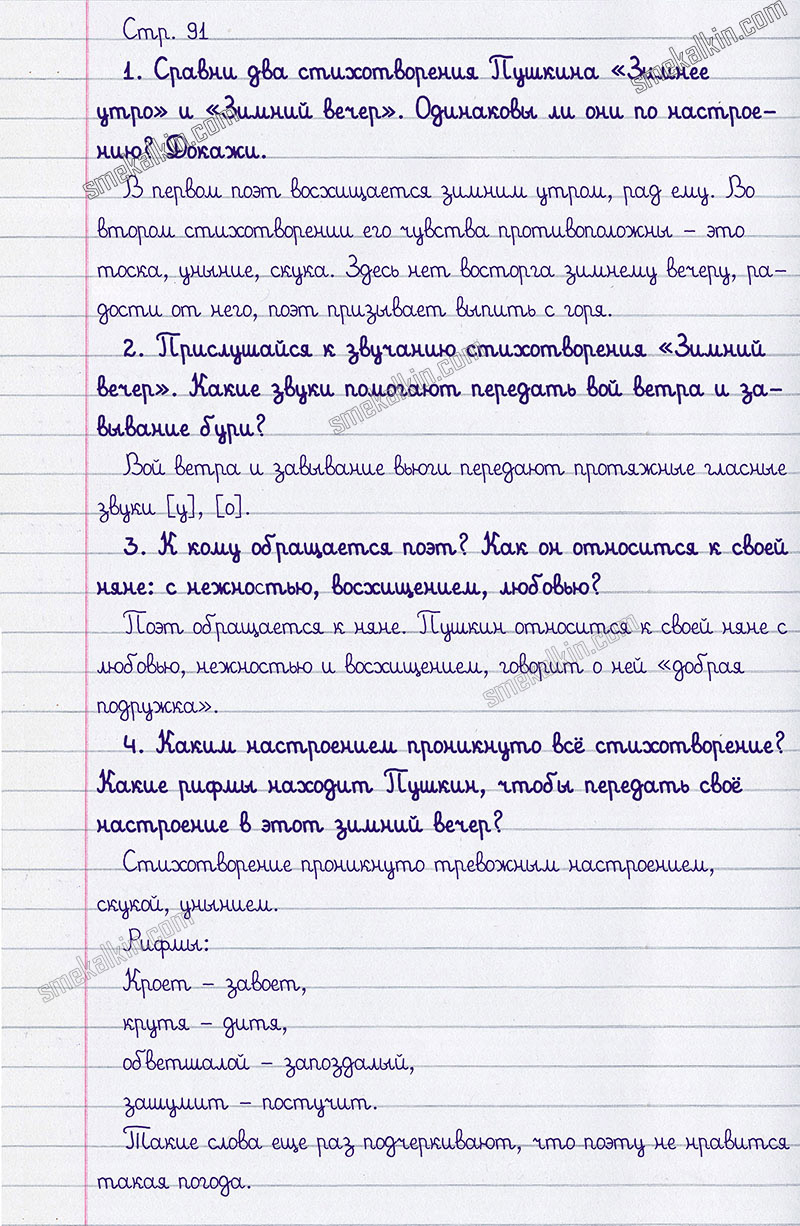 Стр. 91
1. Сравни два стихотворения Пушкина «Зимнее
утро» и «Зимний вечер». Одинаковы ли они по настрое-
нию? Докажи.
В первом поэт восхищается зимним утром, рад ему. Во
втором стихотворении его чувства противоположны – это
тоска, уныние, скука. Здесь нет восторга зимнему вечеру, ра-
дости от него, поэт призывает выпить с горя.
2. Прислушайся к звучанию стихотворения «Зимний
вечер». Какие звуки помогают передать вой ветра и за-
вывание бури?
Вой ветра и завывание вьюги передают протяжные гласные
звуки [у], [о].
3. К кому обращается поэт? Как он относится к своей
няне: с нежностью, восхищением, любовью?
Поэт обращается к няне. Пушкин относится к своей няне с
любовью, нежностью и восхищением, говорит о ней «добрая
подружка».
4. Каким настроением проникнуто всё стихотворение?
Какие рифмы находит Пушкин, чтобы передать своё
настроение в этот зимний вечер?
Стихотворение проникнуто тревожным настроением,
скукой, унынием.
Рифмы:
Кроет – завоет,
крутя – дитя,
обветшалой – запоздалый,
зашумит – постучит.
Такие слова еще раз подчеркивают, что поэту не нравится
такая погода.
smekalkin.com
smekalkin.com
smekalkin.com
smekalkin.com
smekalkin.com